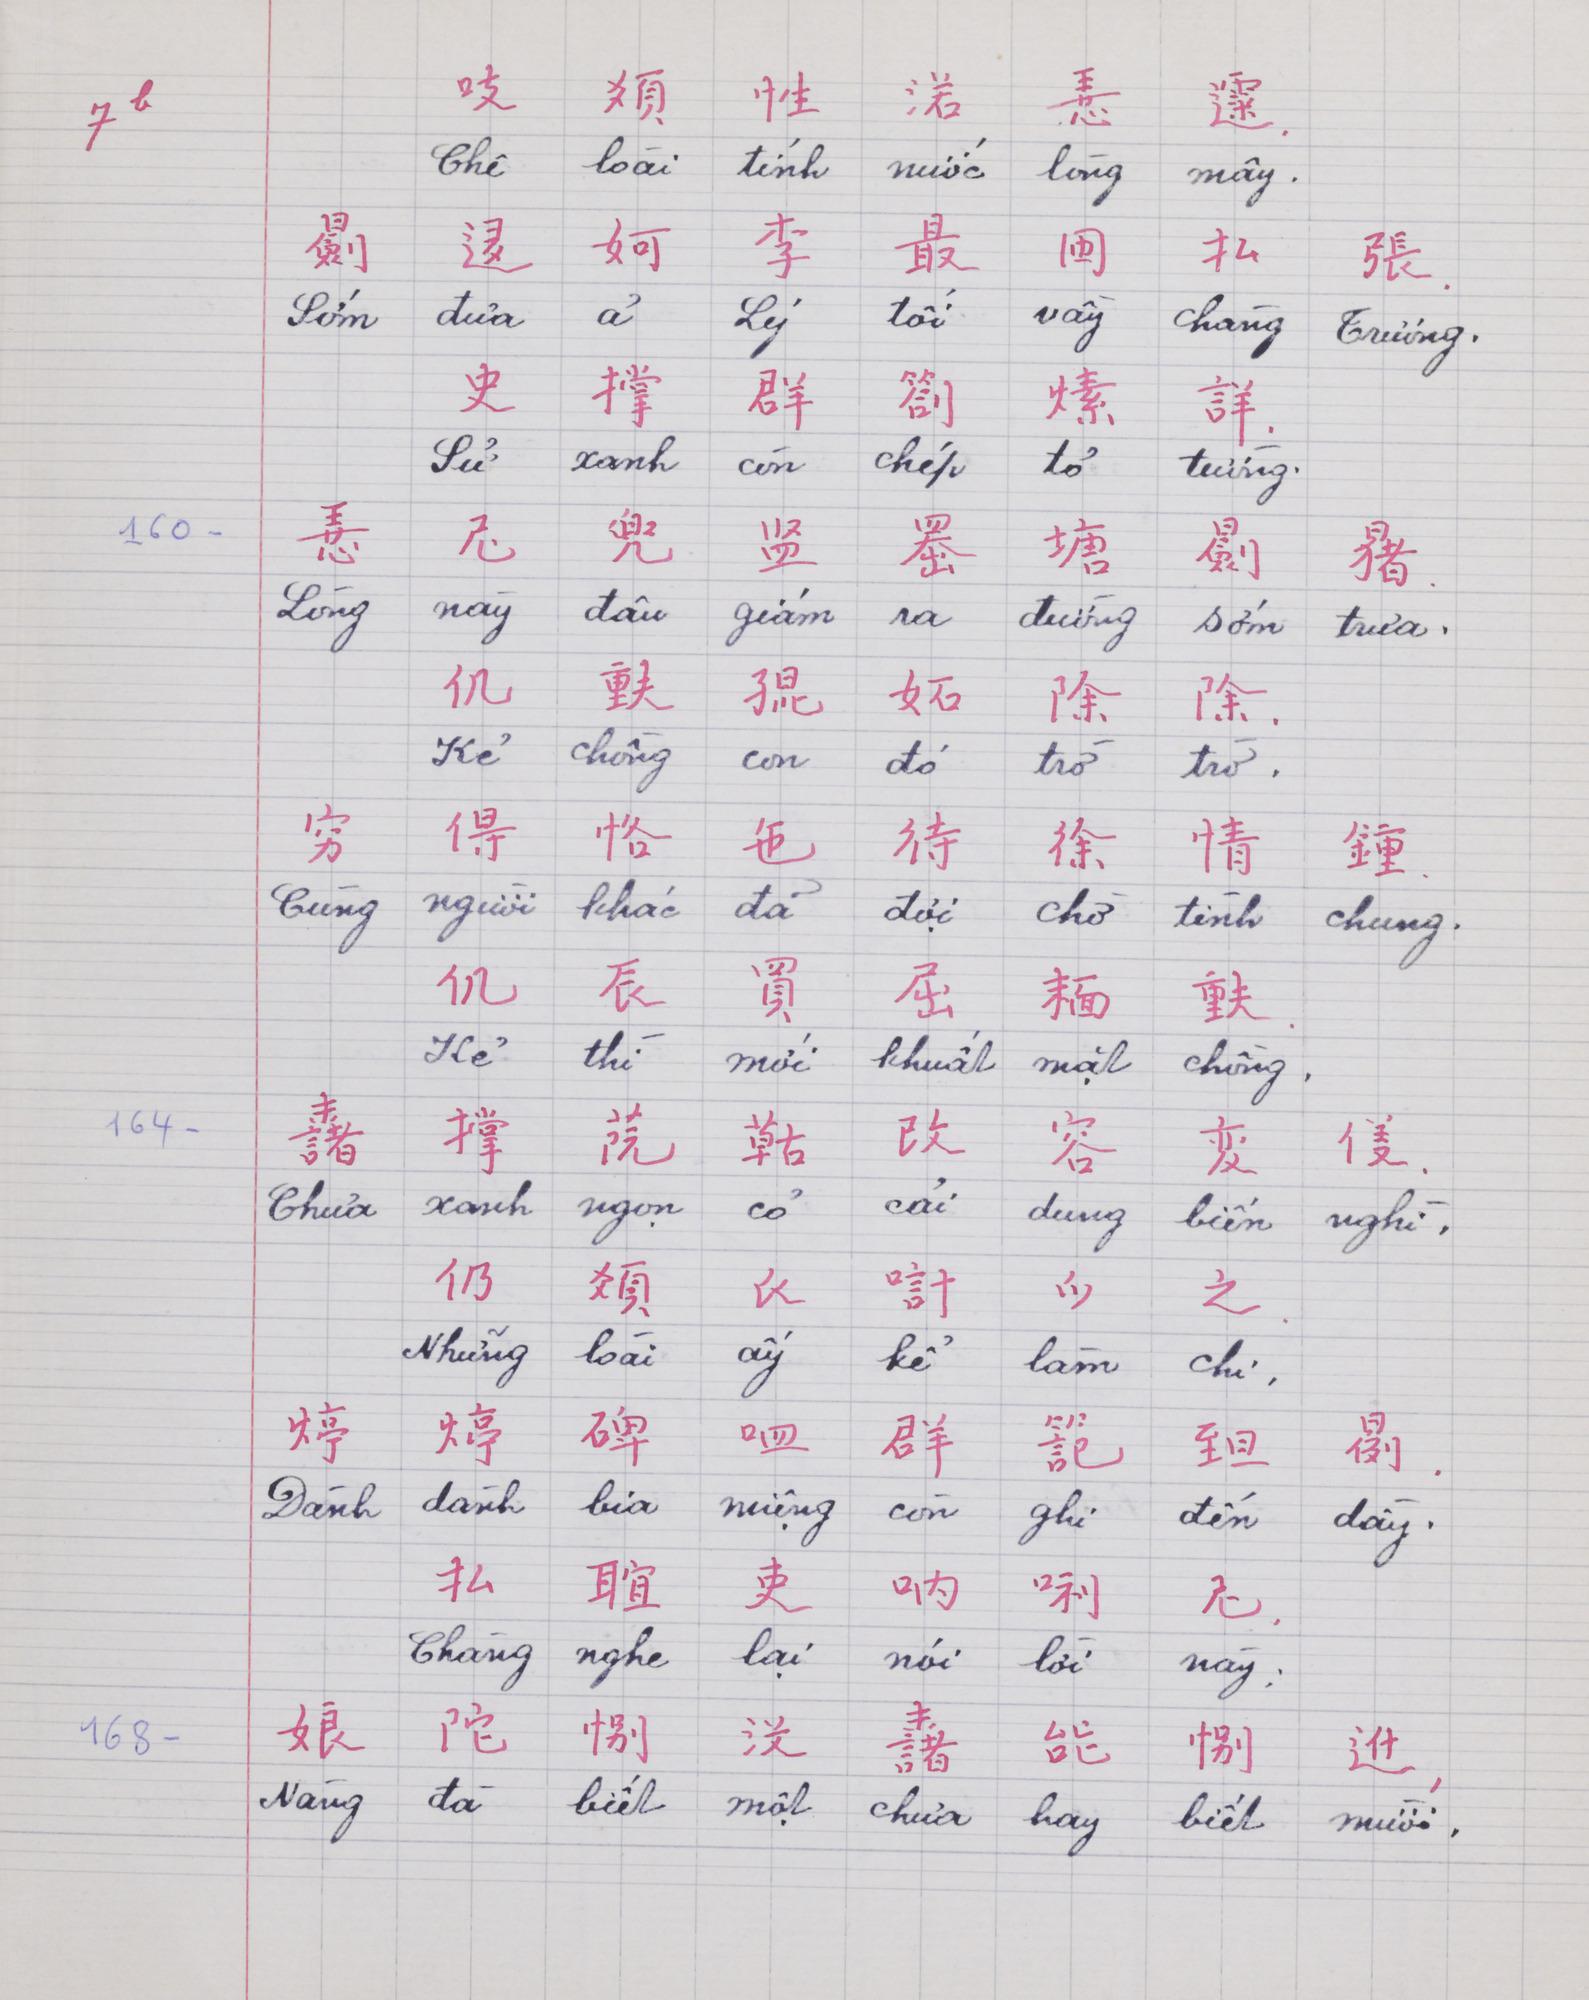 7b
吱 類 性 渃 𢚸 𨗛.
Chê loài tính nước lòng mây.
𣌋 迻 妸 李 最 𡇸 払 張.
Sớm đưa ả Lý tối vầy chàng Trương.
史 撑 群 劄 𤏣 詳.
Sử xanh còn chép tỏ tường.
160-
𢚸 尼 兜 監 𦋦 塘 𣌋 𣋽.
Lòng này đâu giám ra đường sớm trưa.
仉 𫯳 𡥵 妬 除 除.
Kẻ chồng con đó trờ trờ.
穷 得 恪 㐌 待 徐 情 鍾.
Cùng người khác đã đợi chờ tình chung.
仉 辰 買 屈 𩈘 𫯳.
Kẻ thì mới khuất mặt chồng,
164-
𣗓 撑 𦬻 𦹵 改 容 変 儀.
Chưa xanh ngọn cỏ cải dung biến nghì,
仍 類 𧘇 計 𫜵 之.
Những loài ấy kể làm chi,
𤇥 𤇥 碑 𠰘 群 記 𦤾 𣈗.
Dành dành bia miệng còn ghi đến dầy.
払 𦖑 吏 吶 唎 尼.
Chàng nghe lại nói lời này;
168-
娘 陀 別 沒 𣗓 能 別 𨑮,
Nàng đà biết một chưa hay biết mười,